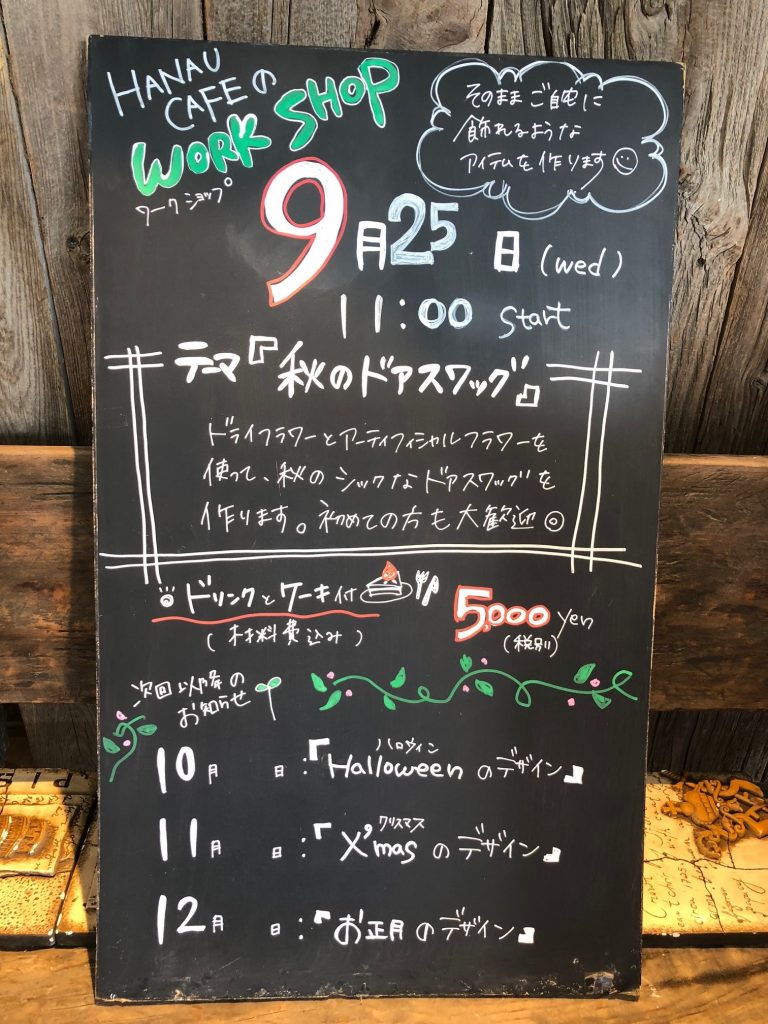 HANAU
CAFEの
WORK SHOP
ワークショップ
そのままご自宅に
飾れるような
アイテムを作ります
9月25日(wed)
11:00 Start
テーマ『秋のドアスワッグ』
ドライフラワーとアーティフィシャルフラワーを
使って、秋のシックなドアスワッグを
作ります。初めての方も大歓迎◎
ドリンクとケーキ付
(材料費込み)
5,000 yen
(税別)
次回以降の
お知らせ
ハロウィン
10月 日:『Halloweenのデザイン』
クリスマス
11月 日:『X'masのデザイン』
12月 日:『お正月のデザイン』